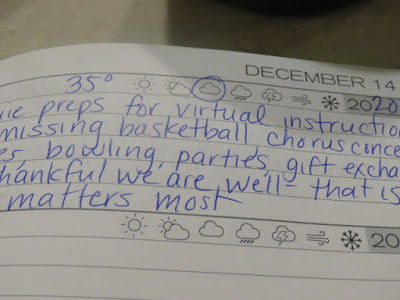 DECEMBER 14
35° 2020
preps for virtual instruction
missing basketball chorus conce
es, bowling, parties, gift excha
hankful we are well - that is
matters most
20